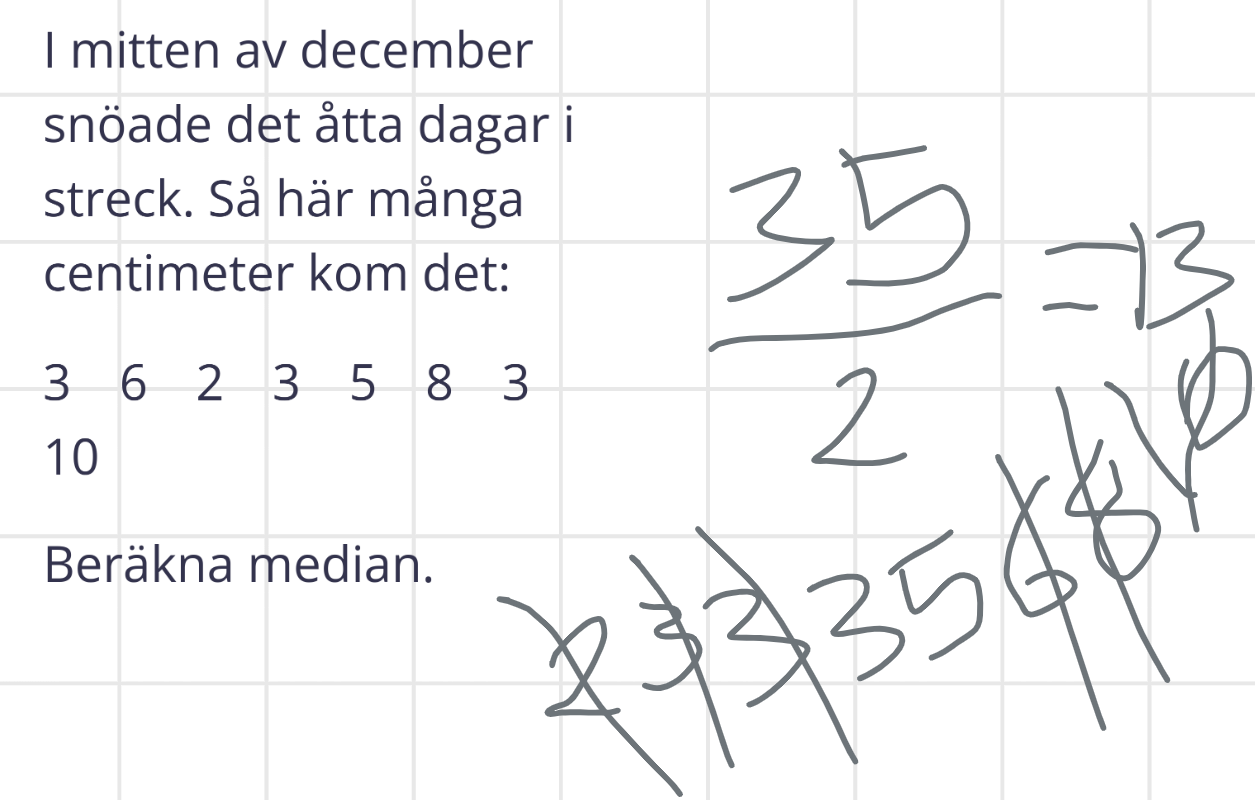 I mitten av december
snöade det åtta dagar i
streck. Så här många
centimeter kom det:
3 6 2 3 5 8 3
10
Beräkna median.
35
2
= 13
2 3 3 3 5 6 8 10